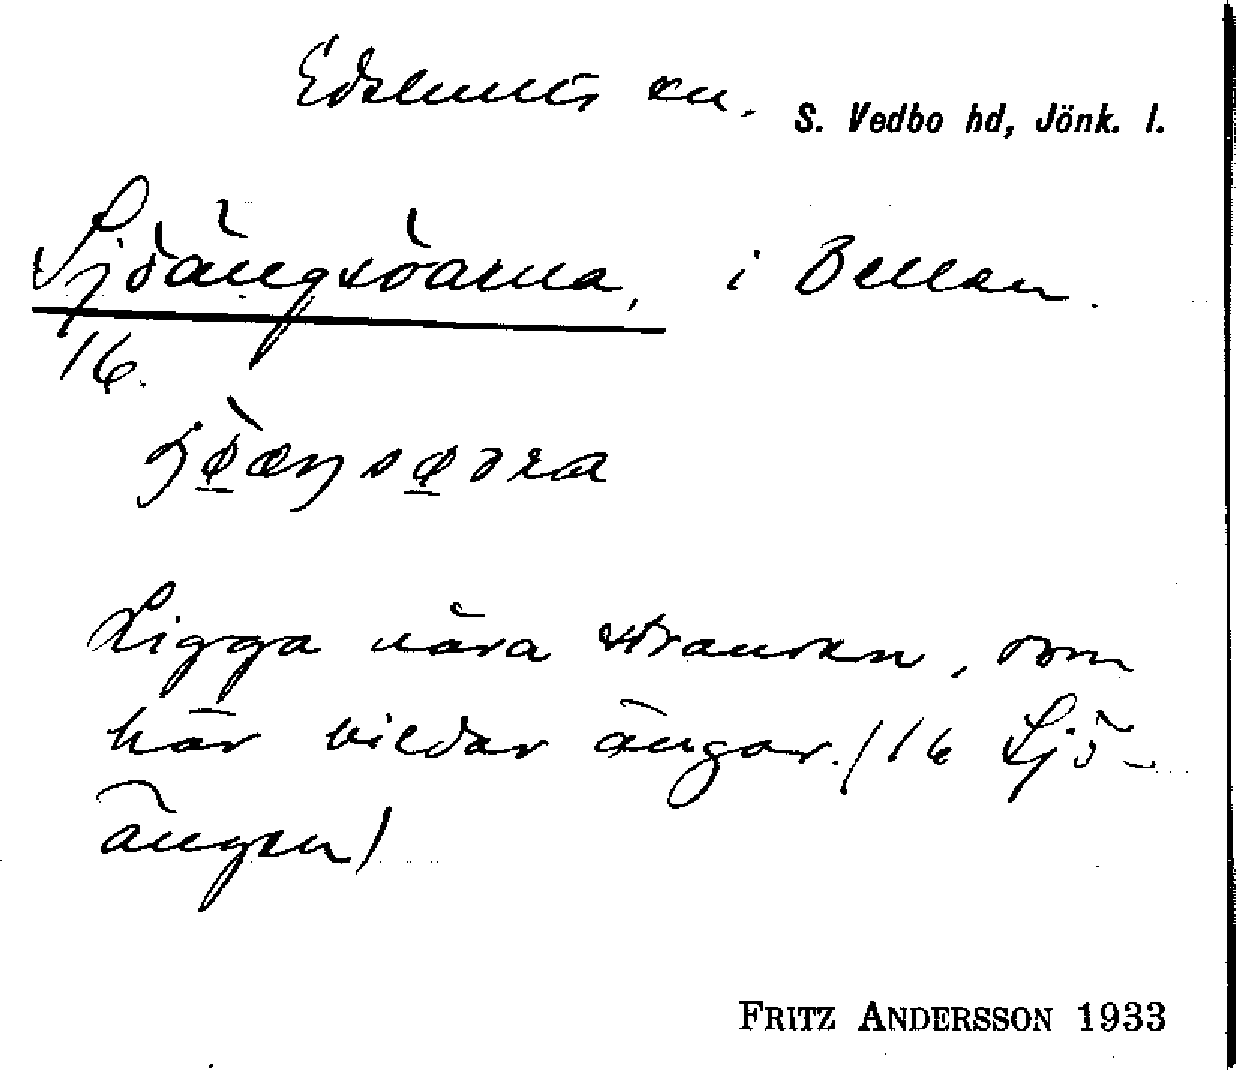 Edshults sn. S. Vedbo hd, Jönk. l.
Sjöängsöarna, i Bellen.
16.
Ligga nära stranden, som
här bildar ängar. (16 Sjö-
ängen)
FRITZ ANDERSSON 1933